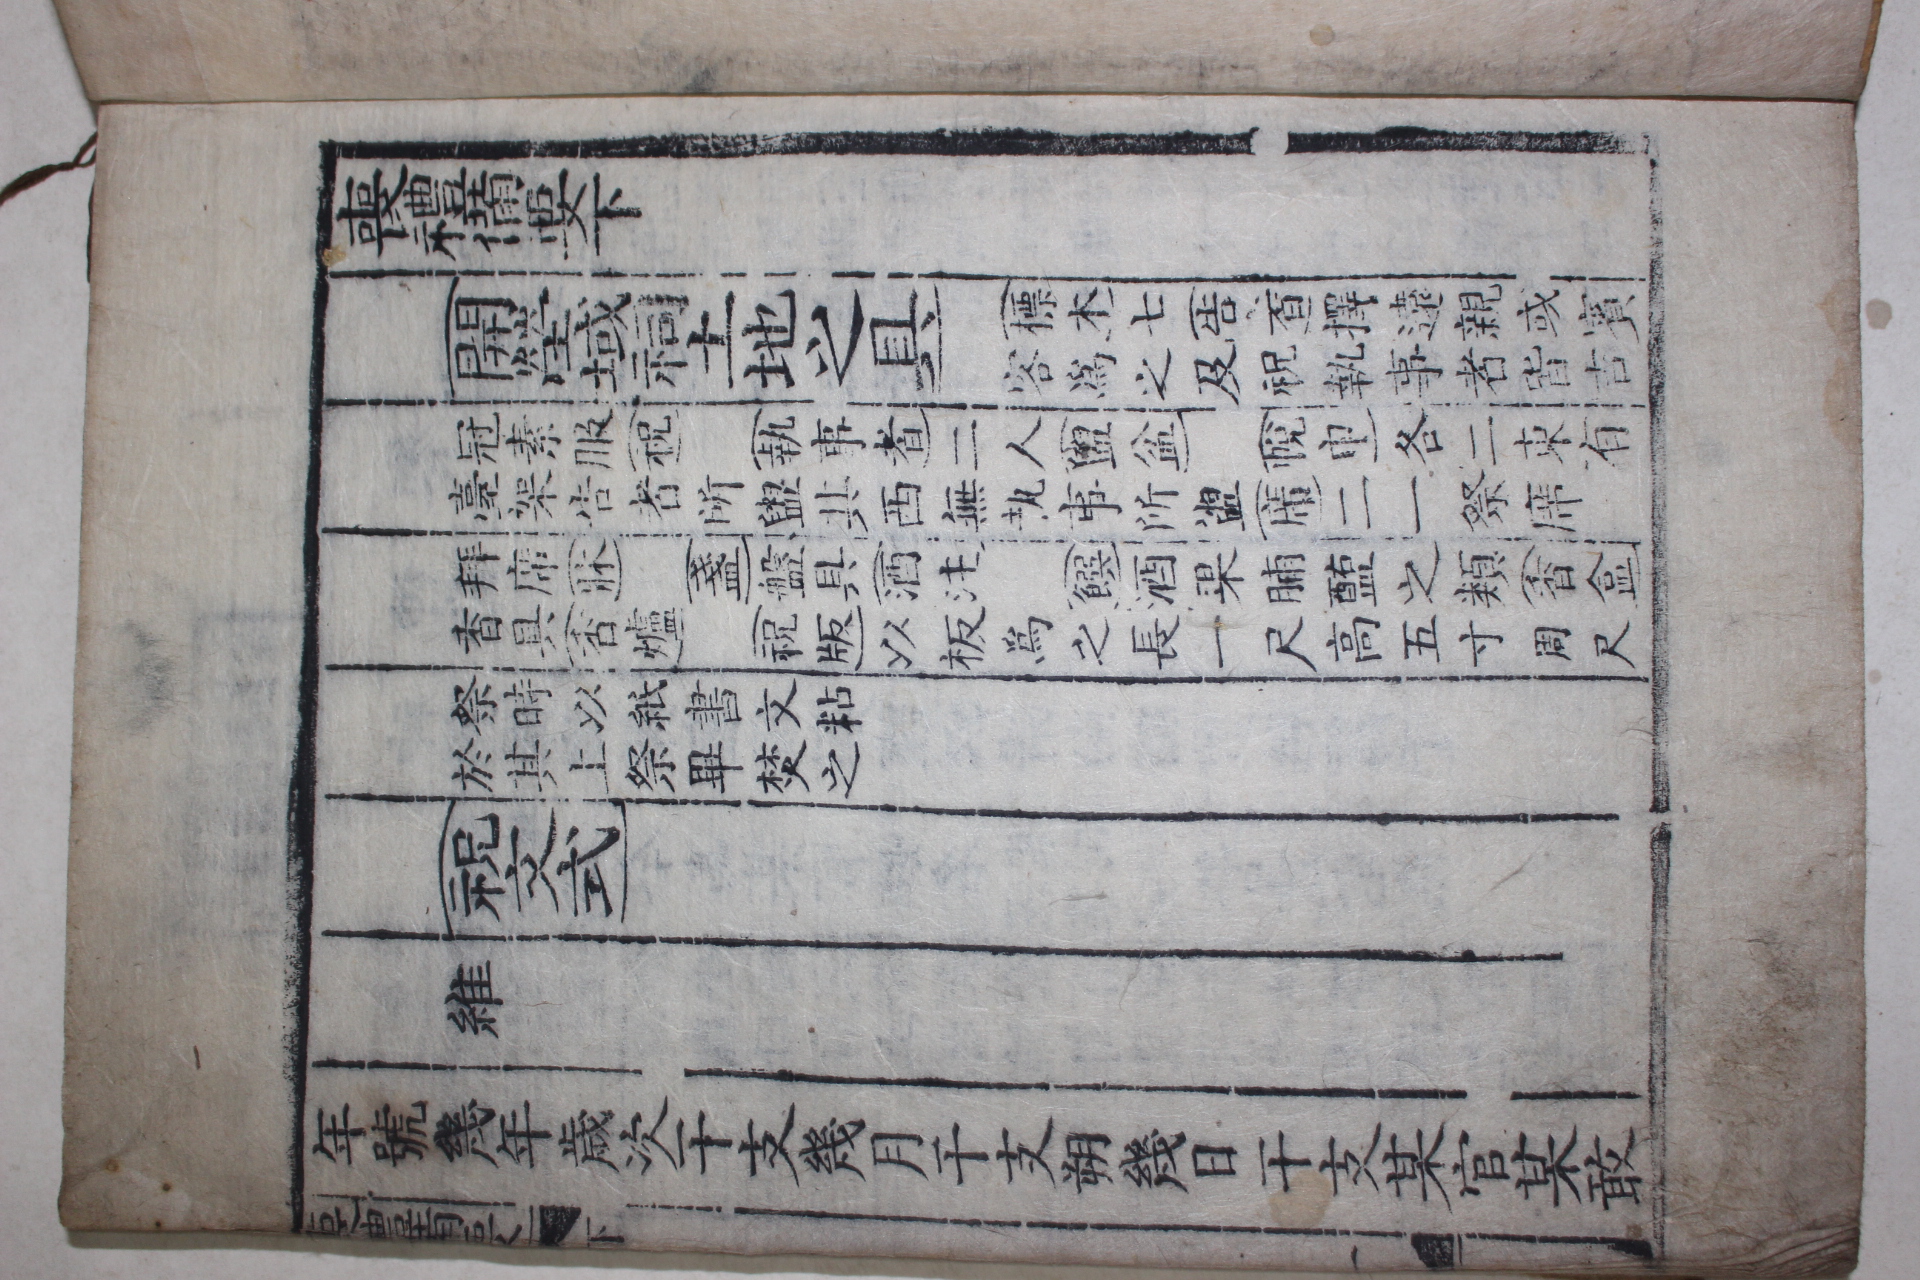 喪禮備要下
開塋域祠土地之具
標木七告者擇遠親或賓
客爲之及祝執事者皆吉
冠素服祝執事者二人盥盆帨巾各二東有
臺架告者所盥其西無執事所盥席二一祭席
拜席牀盞盤具酒注饌酒果脯醢之類香盒
香具香爐祝版以板爲之長一尺高五寸周尺
祭時以紙書文粘
於其上祭畢焚之
祝文式
維
年號幾年歲次干支幾月干支朔幾日干支某官某敢
喪禮備要 下
一